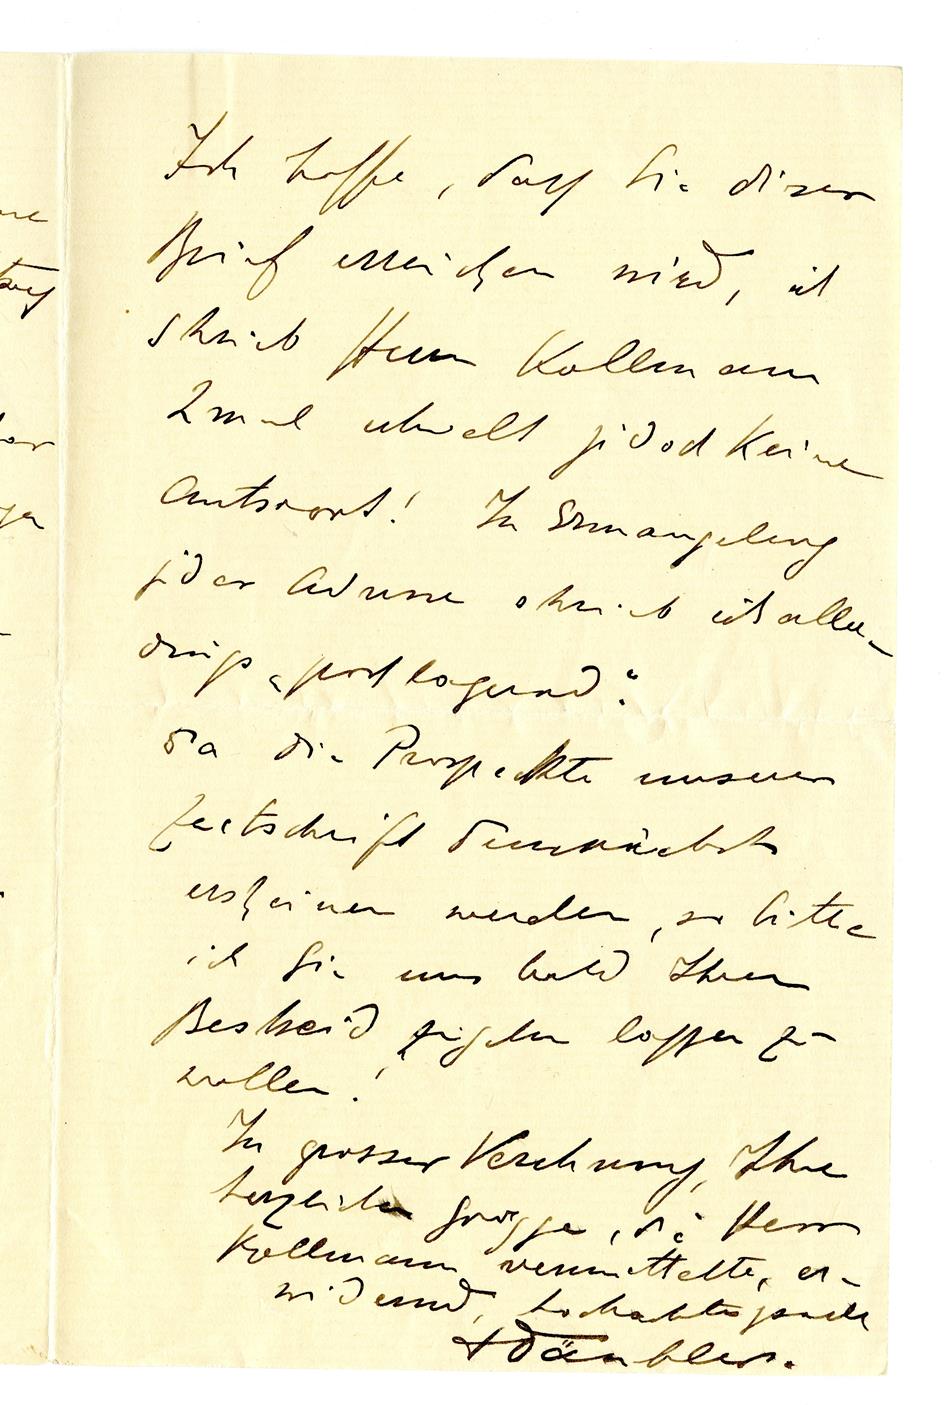 Ich hoffe, dass Sie dieser
Brief erreichen wird, ich
schrieb Herrn Kollmann
2mal erhielt jedoch keine
Antwort! In Ermangelung
jeder Adresse schrieb ich aller-
dings „postlagernd“.
Da die Prospekte unserer
Zeitschrift demnächst
erscheinen werden, so bitte
ich Sie uns bald Ihren
Bescheid zugehen lassen zu
wollen!
In grosser Verehrung, Ihre
herzlichen Grüsse, die Herr
Kollmann vermittelte, er-
widernd, hochachtungsvoll
Däubler.